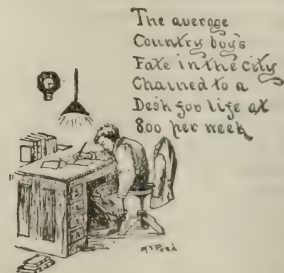 The average
Country boy's
Fate in the city
Chained to a
Desk for life at
800 per week